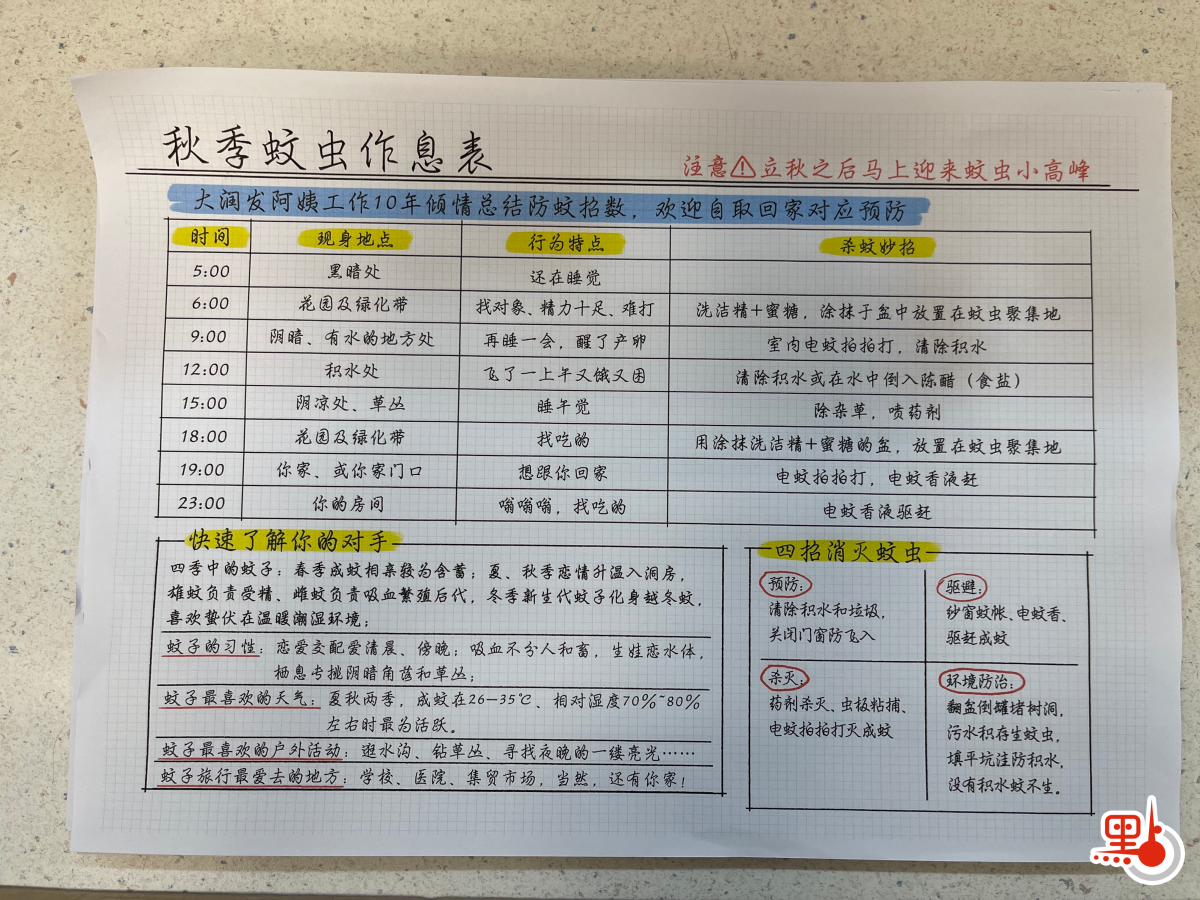 秋季蚊虫作息表
注意⚠立秋之后马上迎来蚊虫小高峰
大润发阿姨工作10年倾情总结防蚊招数，欢迎自取回家对应预防
时间 现身地点 行为特点 杀蚊妙招
5:00 黑暗处 还在睡觉
6:00 花园及绿化带 找对象、精力十足、难打 洗洁精+蜜糖，涂抹于盆中放置在蚊虫聚集地
9:00 阴暗、有水的地方处 再睡一会，醒了产卵 室内电蚊拍拍打，清除积水
12:00 积水处 飞了一上午又饿又困 清除积水或在水中倒入陈醋（食盐）
15:00 阴凉处、草丛 睡午觉 除杂草，喷药剂
18:00 花园及绿化带 找吃的 用涂抹洗洁精+蜜糖的盆，放置在蚊虫聚集地
19:00 你家、或你家门口 想跟你回家 电蚊拍拍打，电蚊香液赶
23:00 你的房间 嗡嗡嗡，找吃的 电蚊香液驱赶
快速了解你的对手
四季中的蚊子：春季成蚊相亲较为含蓄；夏、秋季恋情升温入洞房，
雄蚊负责受精、雌蚊负责吸血繁殖后代，冬季新生代蚊子化身越冬蚊，
喜欢蛰伏在温暖潮湿环境；
蚊子的习性：恋爱交配爱清晨、傍晚；吸血不分人和畜，生娃恋水体，
栖息专挑阴暗角落和草丛；
蚊子最喜欢的天气：夏秋两季，成蚊在26—35℃、相对湿度70%~80%
左右时最为活跃。
蚊子最喜欢的户外活动：逛水沟、钻草丛、寻找夜晚的一缕亮光……
蚊子旅行最爱去的地方：学校、医院、集贸市场，当然，还有你家！
四招消灭蚊虫
预防：
清除积水和垃圾，
关闭门窗防飞入
驱避：
纱窗蚊帐、电蚊香、
驱赶成蚊
杀灭：
药剂杀灭、虫板粘捕、
电蚊拍拍打灭成蚊
环境防治：
翻盆倒罐堵树洞，
污水积存生蚊虫，
填平坑洼防积水，
没有积水蚊不生。
點